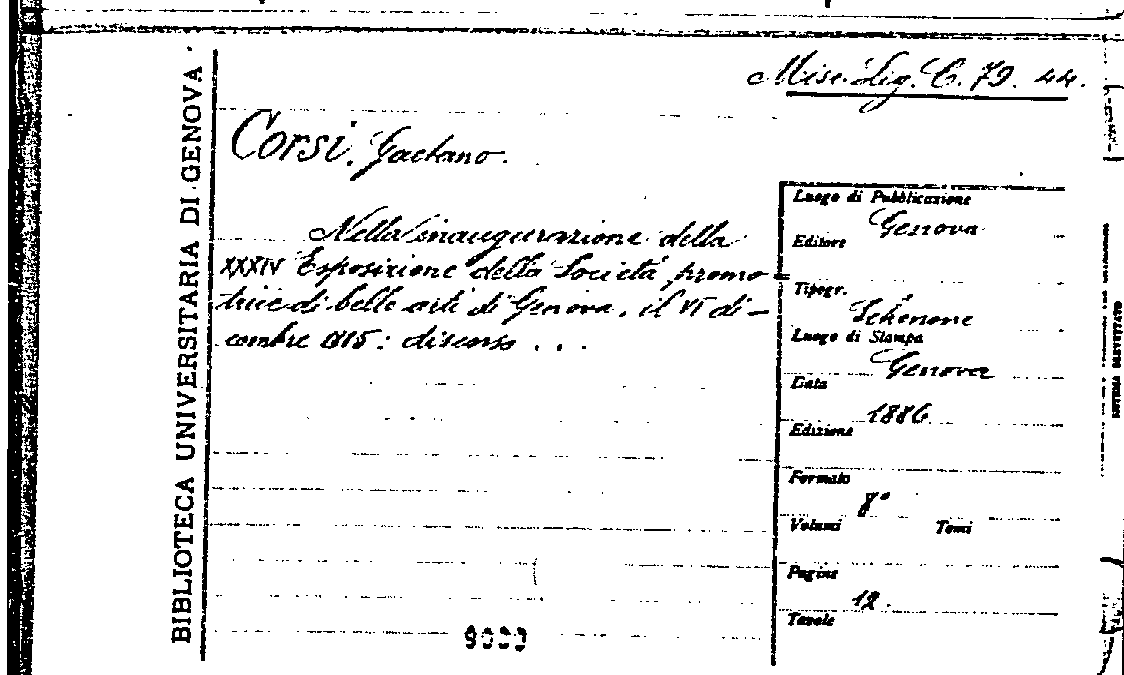 Misc. Lig. C. 79. 44.
BIBLIOTECA UNIVERSITARIA DI GENOVA
Corsi, Gaetano.
Nella inaugurazione della
XXXIV Esposizione della Società promo=
trice di belle arti di Genova, il VI di-
cembre 1885: discorso ...
Luogo di Pubblicazione
Genova
Editore
Tipogr.
Schenone
Luogo di Stampa
Genova
Data
1886
Edizione
Formato
8°
Volumi Tomi
Pagine
12.
Tavole